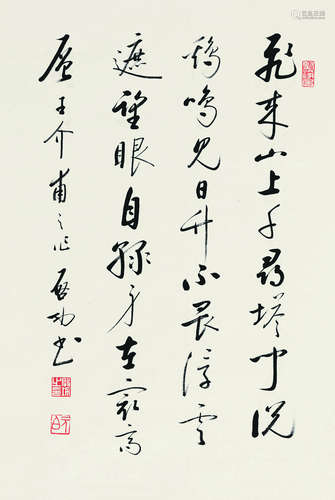 飛來山上千尋塔聞說
鷄鳴見日升不畏浮雲
遮望眼自緣身在最高
層王介甫之作 啟功書